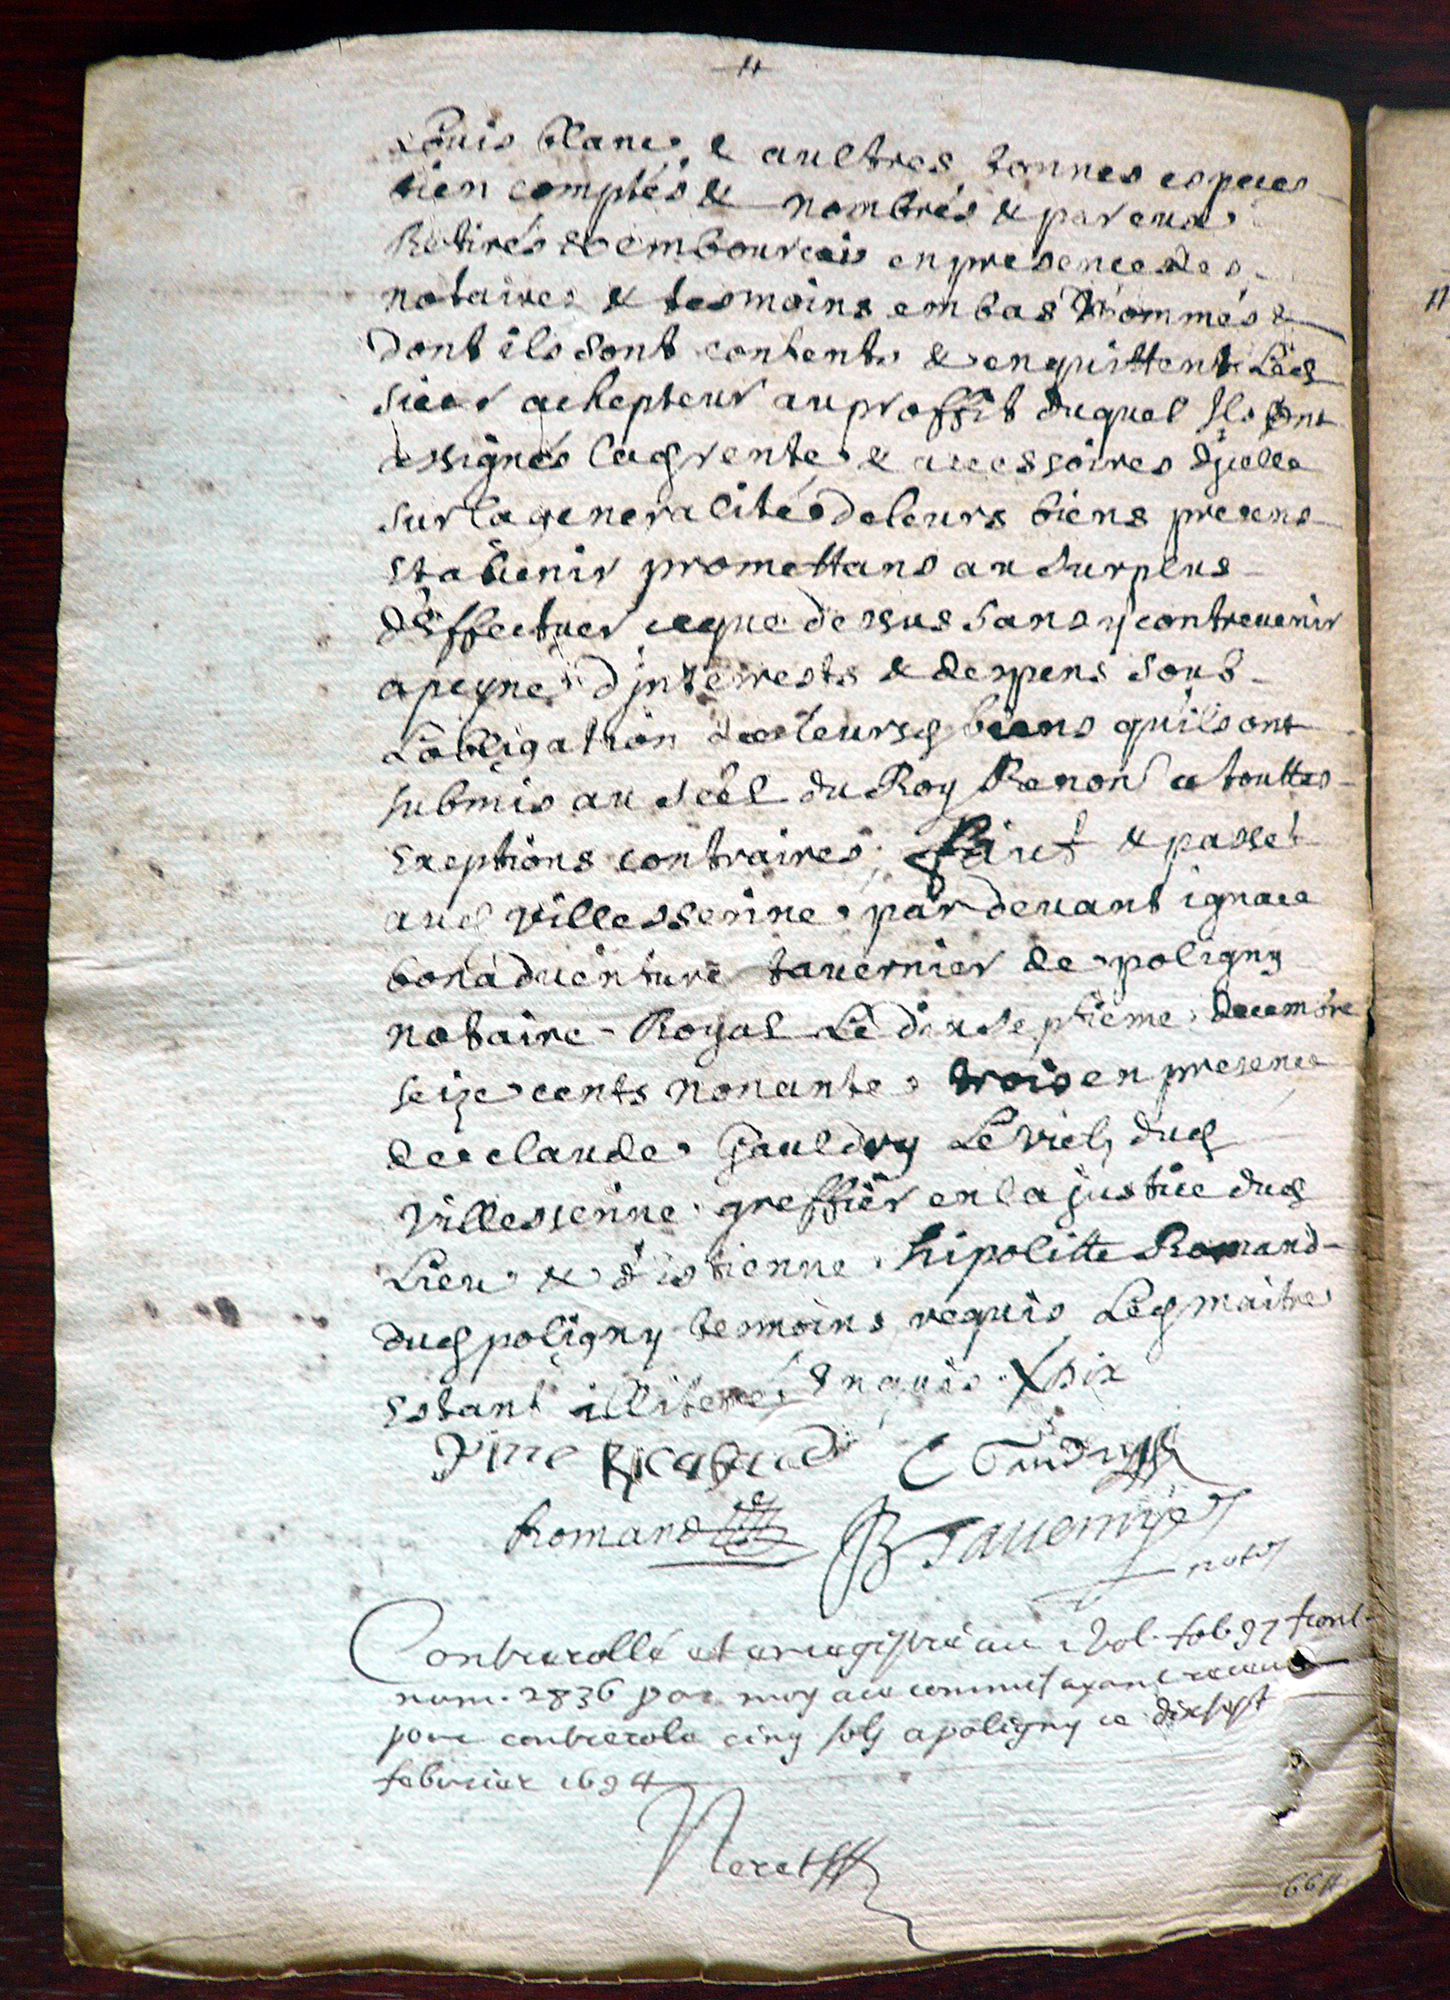 Louis blanc & aultres bonnes especes
bien comptés & nombrés & par eux
Retirés & emboursés en presence des
notaire & tesmoins embas nommés &
dont ils sont contents & en quittent Led
sieur achepteur au proffit duquel Ils ont
assignés lad rente & accessoires d'jcelle
sur la generalité de leurs biens presens
et avenir promettans au surplus
d'effectuer ce que dessus sans y contrevenir
a peyne d'jnterrests & despens soub
L'obligation de leursd biens qu'ils ont
submis au scel du Roy Renon a touttes
exeptions contraires, ffaict & passé
aud villesserine par devant ignace
bonadventure tavernier de poligny
notaire Royal Le dixseptieme decembre
seize cents nonante trois en presence
de claude Gauldry Le viel, dud
villeserine greffier en la justice dud
Lieu & d'estienne hipolitte Romand
dud poligny tesmoins requis Led maitre
estant illiteré Enquis X dix
C Gaudry
Romand
B Tavernier
not
Controrollé et enregistré au vol. fol 97
num. 2836 par moy commis ayant receu
pour controrole cinq sols a poligny ce dixsept
febvrier 1694
Neret
664